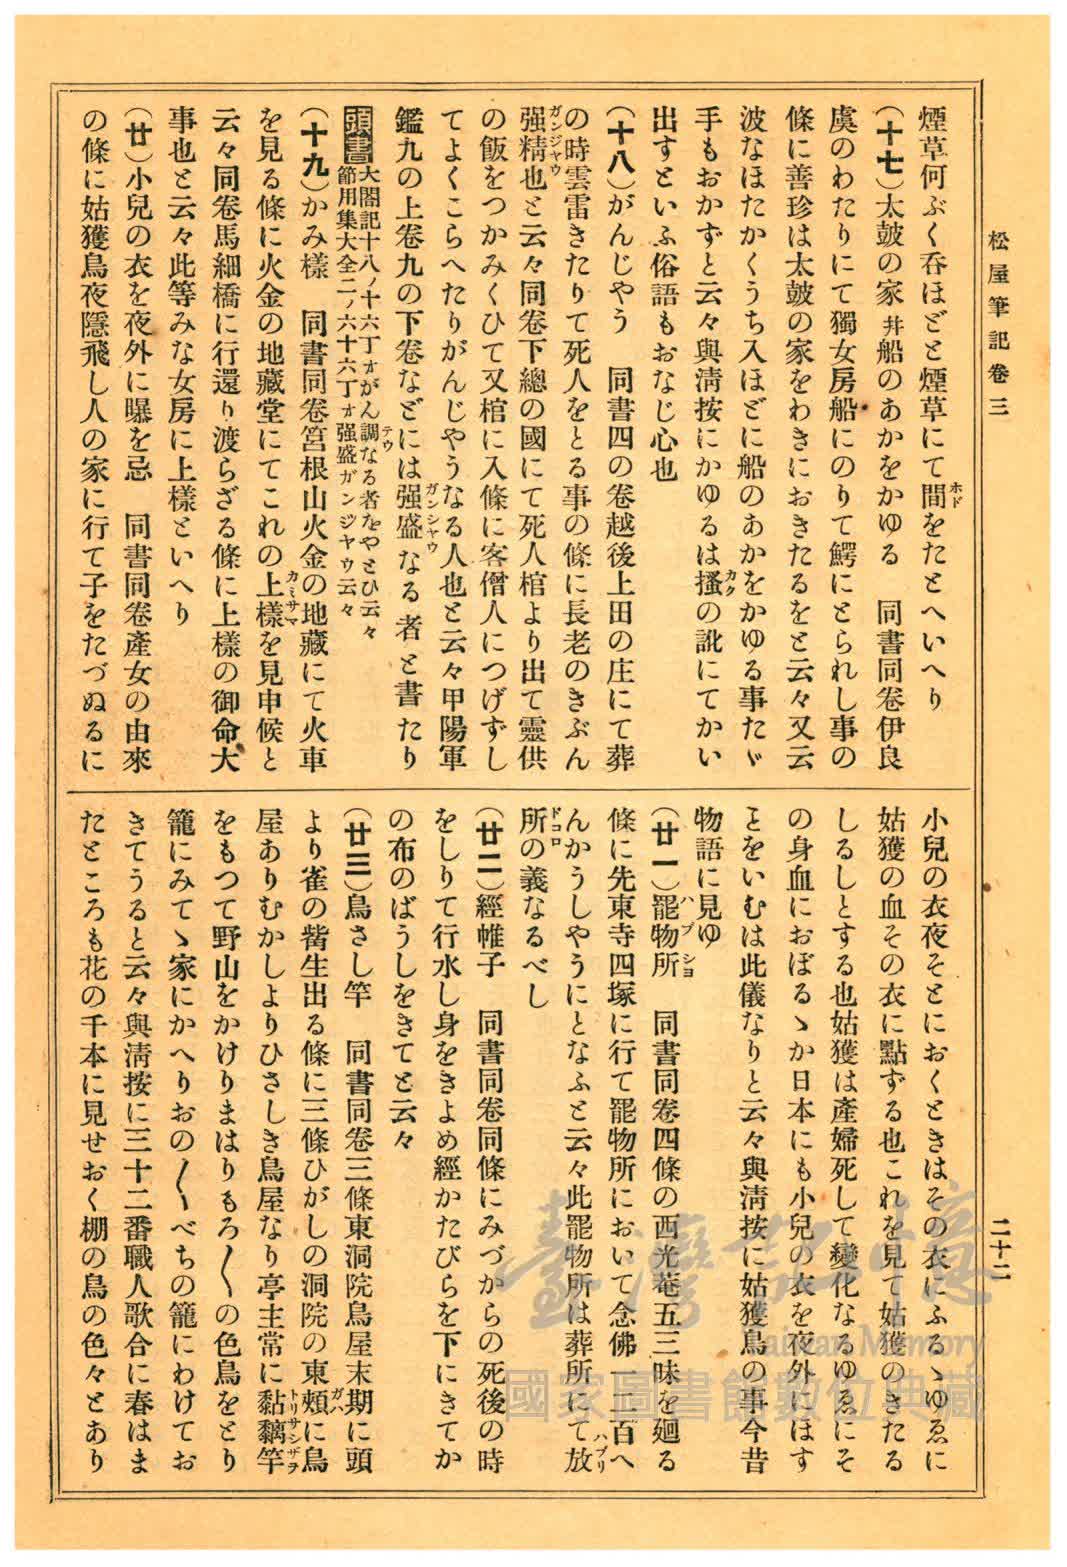 松屋筆記卷三
二十二
煙草何ぶく呑ほどと煙草にて間をたとへいへり
ホド
(十七)太皷の家幷船のあかをかゆる　同書同卷伊良
虞のわたりにて獨女房船にのりて鰐にとられし事の
條に善珍は太皷の家をわきにおきたるをと云々又云
波なほたかくうち入ほどに船のあかをかゆる事たゞ
手もおかずと云々與淸按にかゆるは搔の訛にてかい
カク
出すといふ俗語もおなじ心也
(十八)がんじやう　同書四の卷越後上田の庄にて葬
の時雲雷きたりて死人をとる事の條に長老のきぶん
强精也と云々同卷下總の國にて死人棺より出て靈供
ガンジヤウ
の飯をつかみくひて又棺に入條に客僧人につげずし
てよくこらへたりがんじやうなる人也と云々甲陽軍
鑑九の上卷九の下卷などには强盛なる者と書たり
ガンシヤウ
頭書 大閤記十八ノ十六丁オがん調なる者をやとひ云々
テウ
節用集大全二ノ六十六丁オ强盛ガンジヤウ云々
(十九)かみ樣　同書同卷筥根山火金の地藏にて火車
を見る條に火金の地藏堂にてこれの上樣を見申候と
カミサマ
云々同卷馬細橋に行還り渡らざる條に上樣の御命大
事也と云々此等みな女房に上樣といへり
(廿)小兒の衣を夜外に曝を忌　同書同卷產女の由來
の條に姑獲鳥夜隱飛し人の家に行て子をたづぬるに
小兒の衣夜そとにおくときはその衣にふるゝゆゑに
姑獲の血その衣に點ずる也これを見て姑獲のきたる
しるしとする也姑獲は產婦死して變化なるゆゑにそ
の身血におぼるゝか日本にも小兒の衣を夜外にほす
ことをいむは此儀なりと云々與淸按に姑獲鳥の事今昔
物語に見ゆ
(廿一)罷物所　同書同卷四條の西光菴五三昧を廻る
ハブシヨ
條に先東寺四塚に行て罷物所において念佛一二百へ
んかうしやうにとなふと云々此罷物所は葬所にて放
ハブリ
所の義なるべし
ドコロ
(廿二)經帷子　同書同卷同條にみづからの死後の時
をしりて行水し身をきよめ經かたびらを下にきてか
の布のばうしをきてと云々
(廿三)鳥さし竿　同書同卷三條東洞院鳥屋末期に頭
より雀の觜生出る條に三條ひがしの洞院の東頰に鳥
ガハ
屋ありむかしよりひさしき鳥屋なり亭主常に黏黐竿
トリサシザヲ
をもつて野山をかけりまはりもろ〳〵の色鳥をとり
籠にみてゝ家にかへりおの〳〵べちの籠にわけてお
きてうると云々與淸按に三十二番職人歌合に春はま
たところも花の千本に見せおく棚の鳥の色々とあり
臺灣記憶
Taiwan Memory
國家圖書館數位典藏